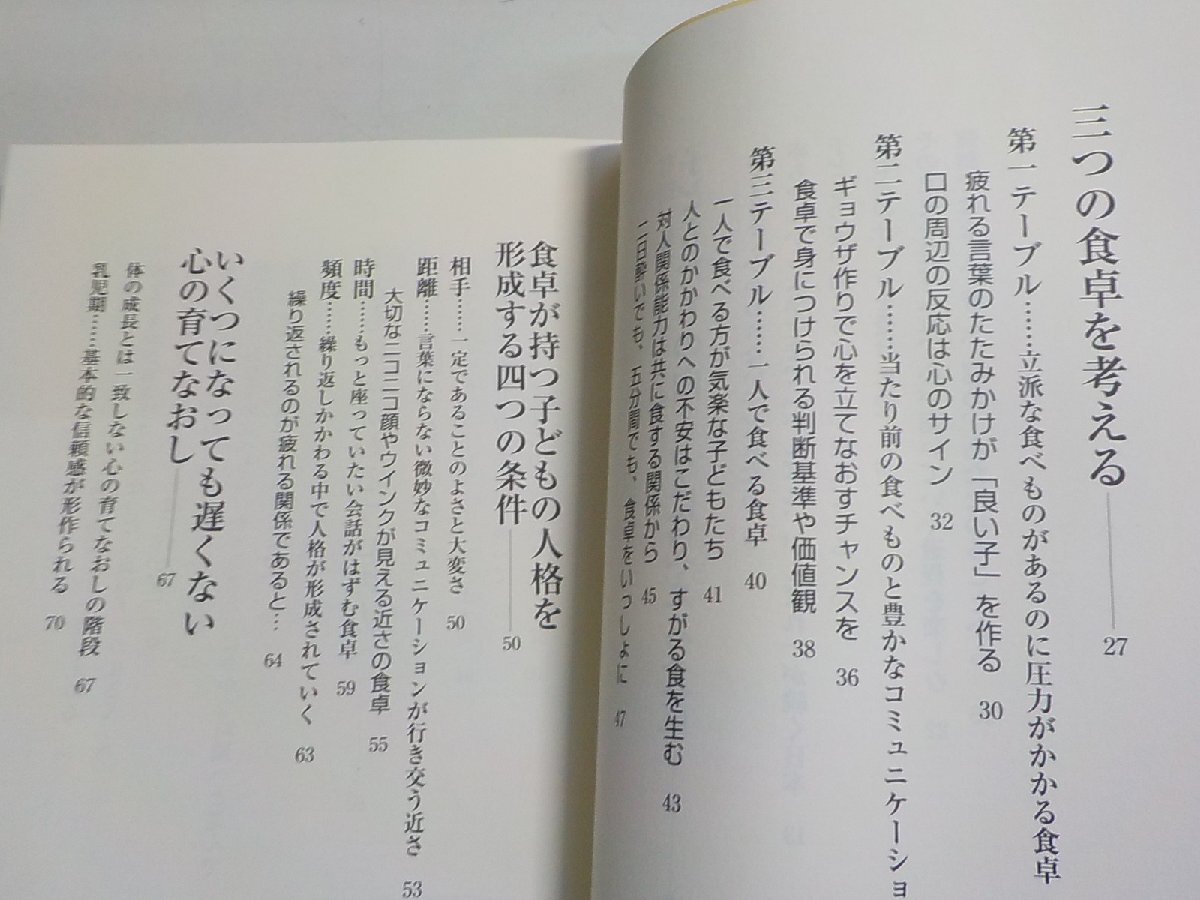 三つの食卓を考える―― 27
第一テーブル……立派な食べものがあるのに圧力がかかる食卓
疲れる言葉のたたみかけが「良い子」を作る 30
口の周辺の反応は心のサイン 32
第二テーブル……当たり前の食べものと豊かなコミュニケーショ
ギョウザ作りで心を立てなおすチャンスを 36
食卓で身につけられる判断基準や価値観 38
第三テーブル……一人で食べる食卓 40
一人で食べる方が気楽な子どもたち 41
人とのかかわりへの不安はこだわり、すがる食を生む 43
対人関係能力は共に食する関係から 45
二日酔いでも、五分間でも、食卓をいっしょに 47
食卓が持つ子どもの人格を
形成する四つの条件―― 50
相手……一定であることのよさと大変さ 50
距離……言葉にならない微妙なコミュニケーションが行き交う近さ 53
大切なニコニコ顔やウインクが見える近さの食卓 55
時間……もっと座っていたい会話がはずむ食卓 59
頻度……繰り返しかかわる中で人格が形成されていく 63
繰り返されるのが疲れる関係であると… 64
いくつになっても遅くない
心の育てなおし―― 67
体の成長とは一致しない心の育てなおしの階段 67
乳児期……基本的な信頼感が形作られる 70